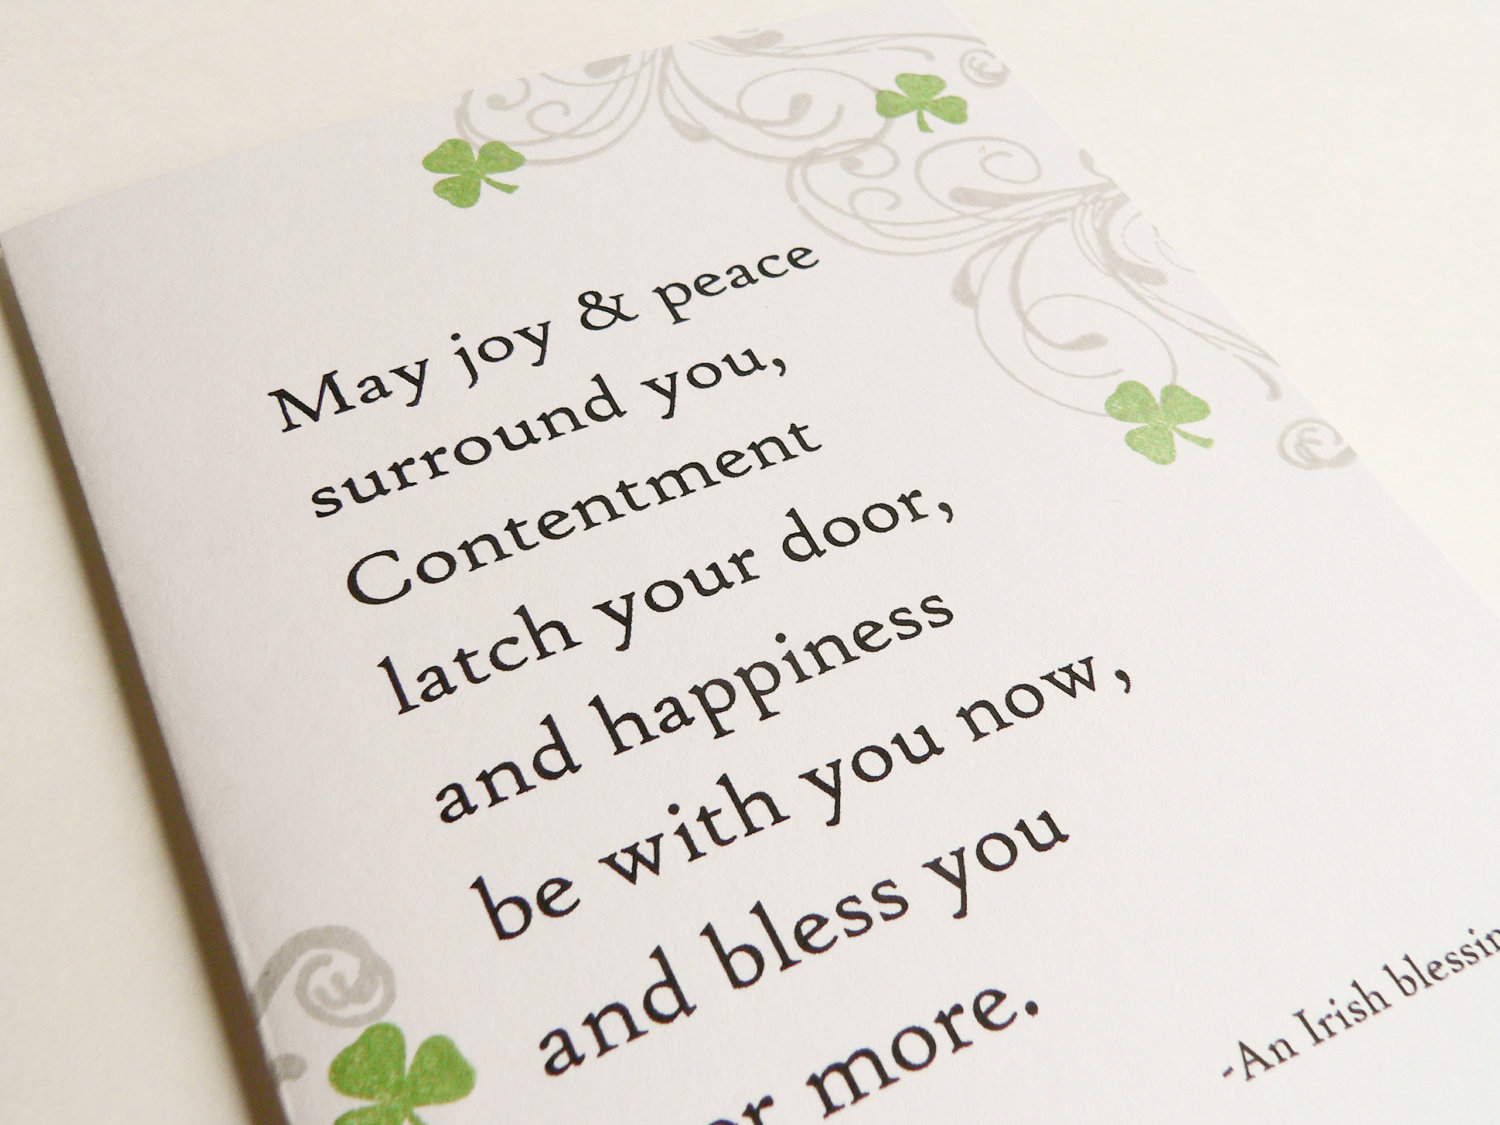 May joy & peace
surround you,
Contentment
latch your door,
and happiness
be with you now,
and bless you
more.
-An Irish